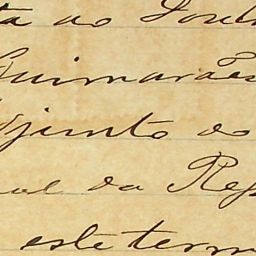 ao Dout
Guimarães
djunto do
al da Reg
este term